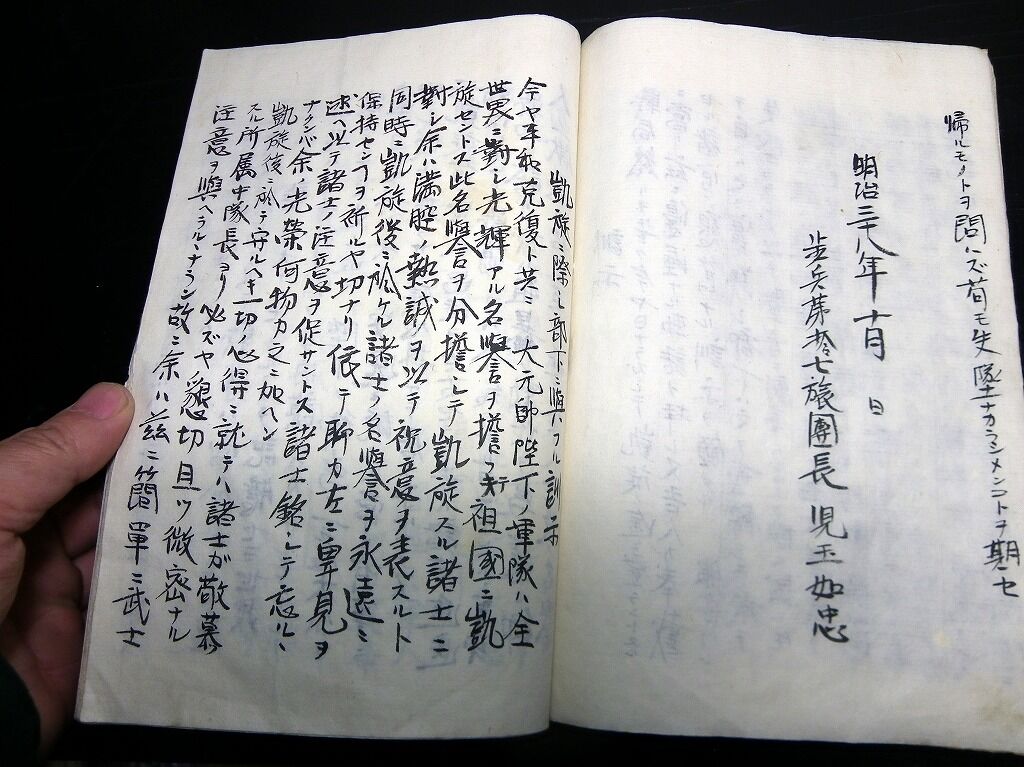 帰ルモノトヲ問ハズ苟モ失墜ナカラシメンコトヲ期セ
明治三十八年十月　日
歩兵第拾七旅團長児玉如忠
凱旋ニ際シ部下ニ與フル訓示
今ヤ平和克復ト共ニ大元帥陛下ノ軍隊ハ全
世界ニ對シ光輝アル名譽ヲ擔フテ祖國ニ凱
旋セントス此名譽ヲ分擔シテ凱旋スル諸士ニ
對シ余ハ満腔ノ熱誠ヲ以テ祝意ヲ表スルト
同時ニ凱旋後ニ於ケル諸士ノ名譽ヲ永遠ニ
保持センヿヲ祈ルヤ切ナリ依テ聊カ左ニ卑見ヲ
述ヘ以テ諸士ノ注意ヲ促サントス諸士銘シテ忘ルヽ
ナクンバ余ノ光榮何物カ之ニ加ヘン
凱旋後ニ於テ守ルヘキ一切ノ心得ニ就テハ諸士ガ敬慕
スル所属中隊長ヨリ必ズヤ懇切且ツ微密ナル
注意ヲ與ヘラルヽナラン故ニ余ハ茲ニ簡單ニ武士